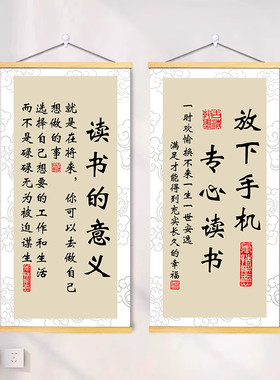 读书的意义
就是在将来，你可以去做自己
想做的事
选择自己想要的工作和生活
而不是碌碌无为被迫谋生
放下手机
专心读书
一时欢愉换不来一生一世安逸
满足才能得到充实长久的幸福